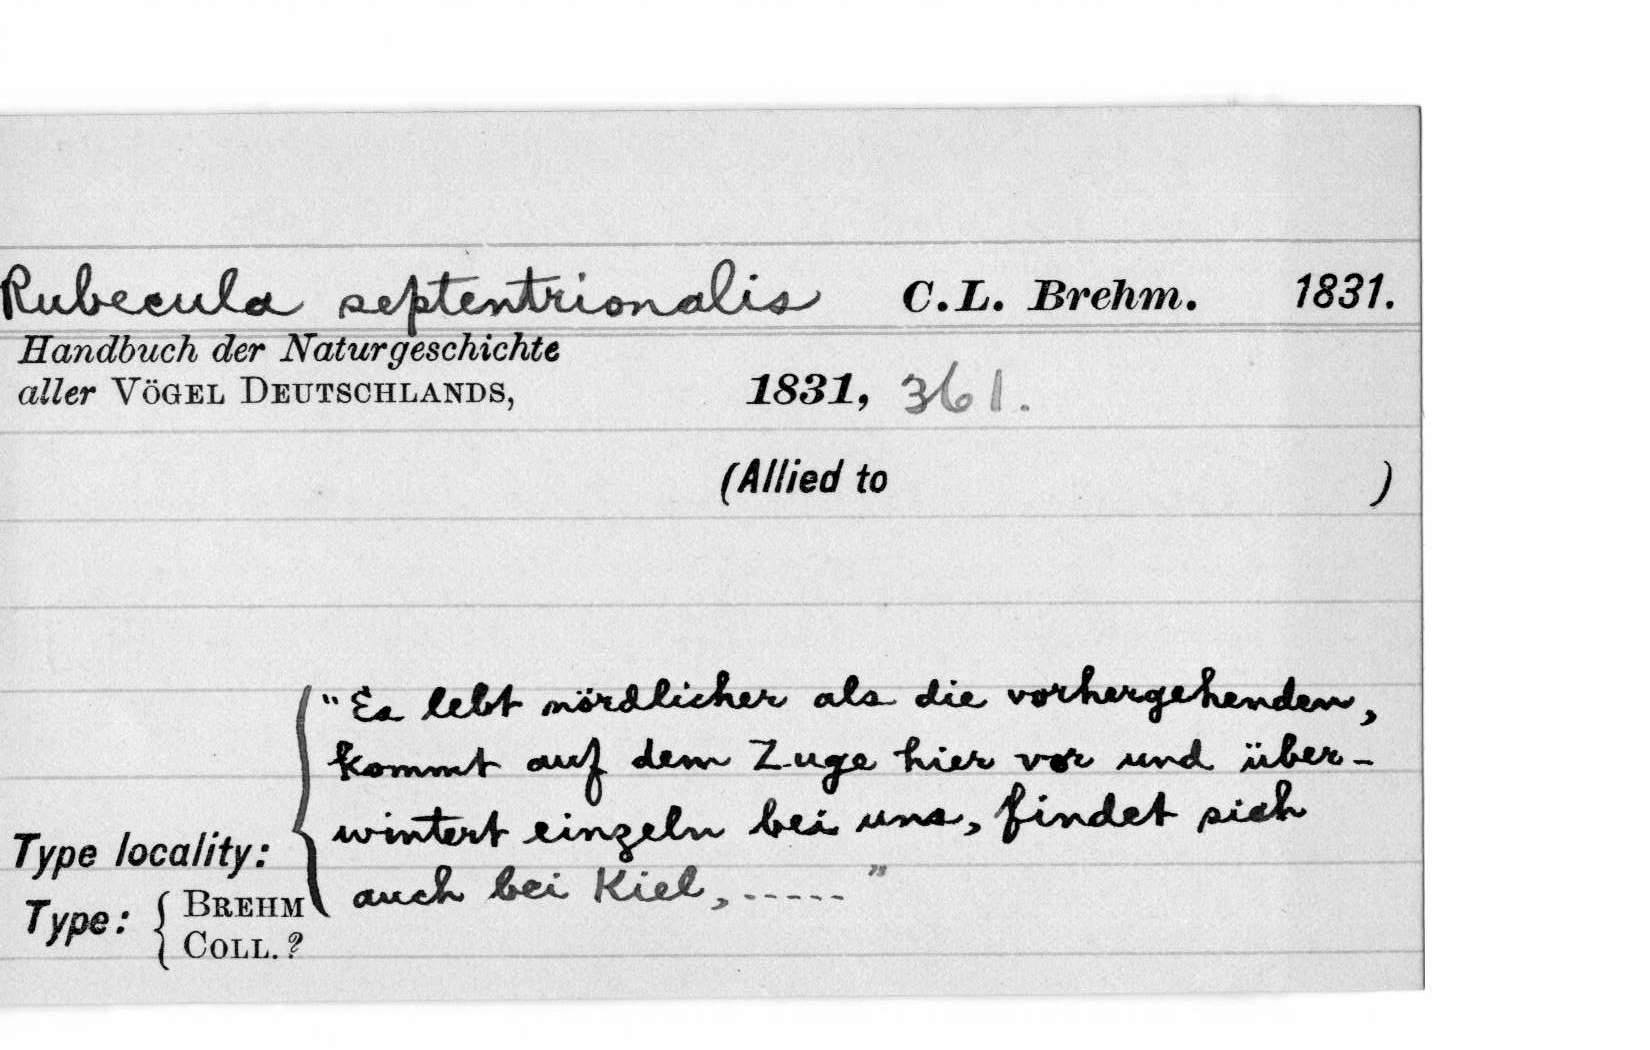 Rubecula septentrionalis C.L. Brehm. 1831.
Handbuch der Naturgeschichte
aller VÖGEL DEUTSCHLANDS, 1831, 361.
(Allied to )
"Es lebt nördlicher als die vorhergehenden,
kommt auf dem Zuge hier vor und über-
wintert einzeln bei uns, findet sich
Type locality: auch bei Kiel, ....."
Type: { BREHM
COLL. ?